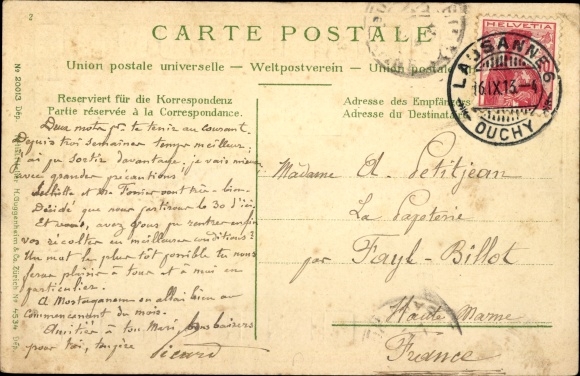 2
CARTE POSTALE
Union postale universelle — Weltpostverein — Union postale
HELVETIA
LAUSANNE 6
16.IX.13.-4
OUCHY
Reserviert für die Korrespondenz
Partie réservée à la Correspondance.
Adresse des Empfängers
Adresse du Destinat
Deux mots pr te tenir au courant.
Depuis trois semaines temps meilleur;
j'ai pu sortir davantage, je vais mieux
avec grandes précautions
et Mr vont très-bien.
Décidé que nous partirons le 30 d'ici.
Et vous, avez vous pu rentrer enfin
vos récoltes en meilleures conditions?
Un mot le plus tôt possible tu nous
feras plaisir à tous et à moi en
particulier.
A Mostaganem on allait bien au
commencement du mois.
Amitiés à ton Mari, bons baisers
pour toi,
Picard
Madame A. Petitjean
La Papeterie
par Fayl-Billot
Haute Marne
France
No 20013 Dép. H. Guggenheim & Co, Zürich No 4534 Dép.